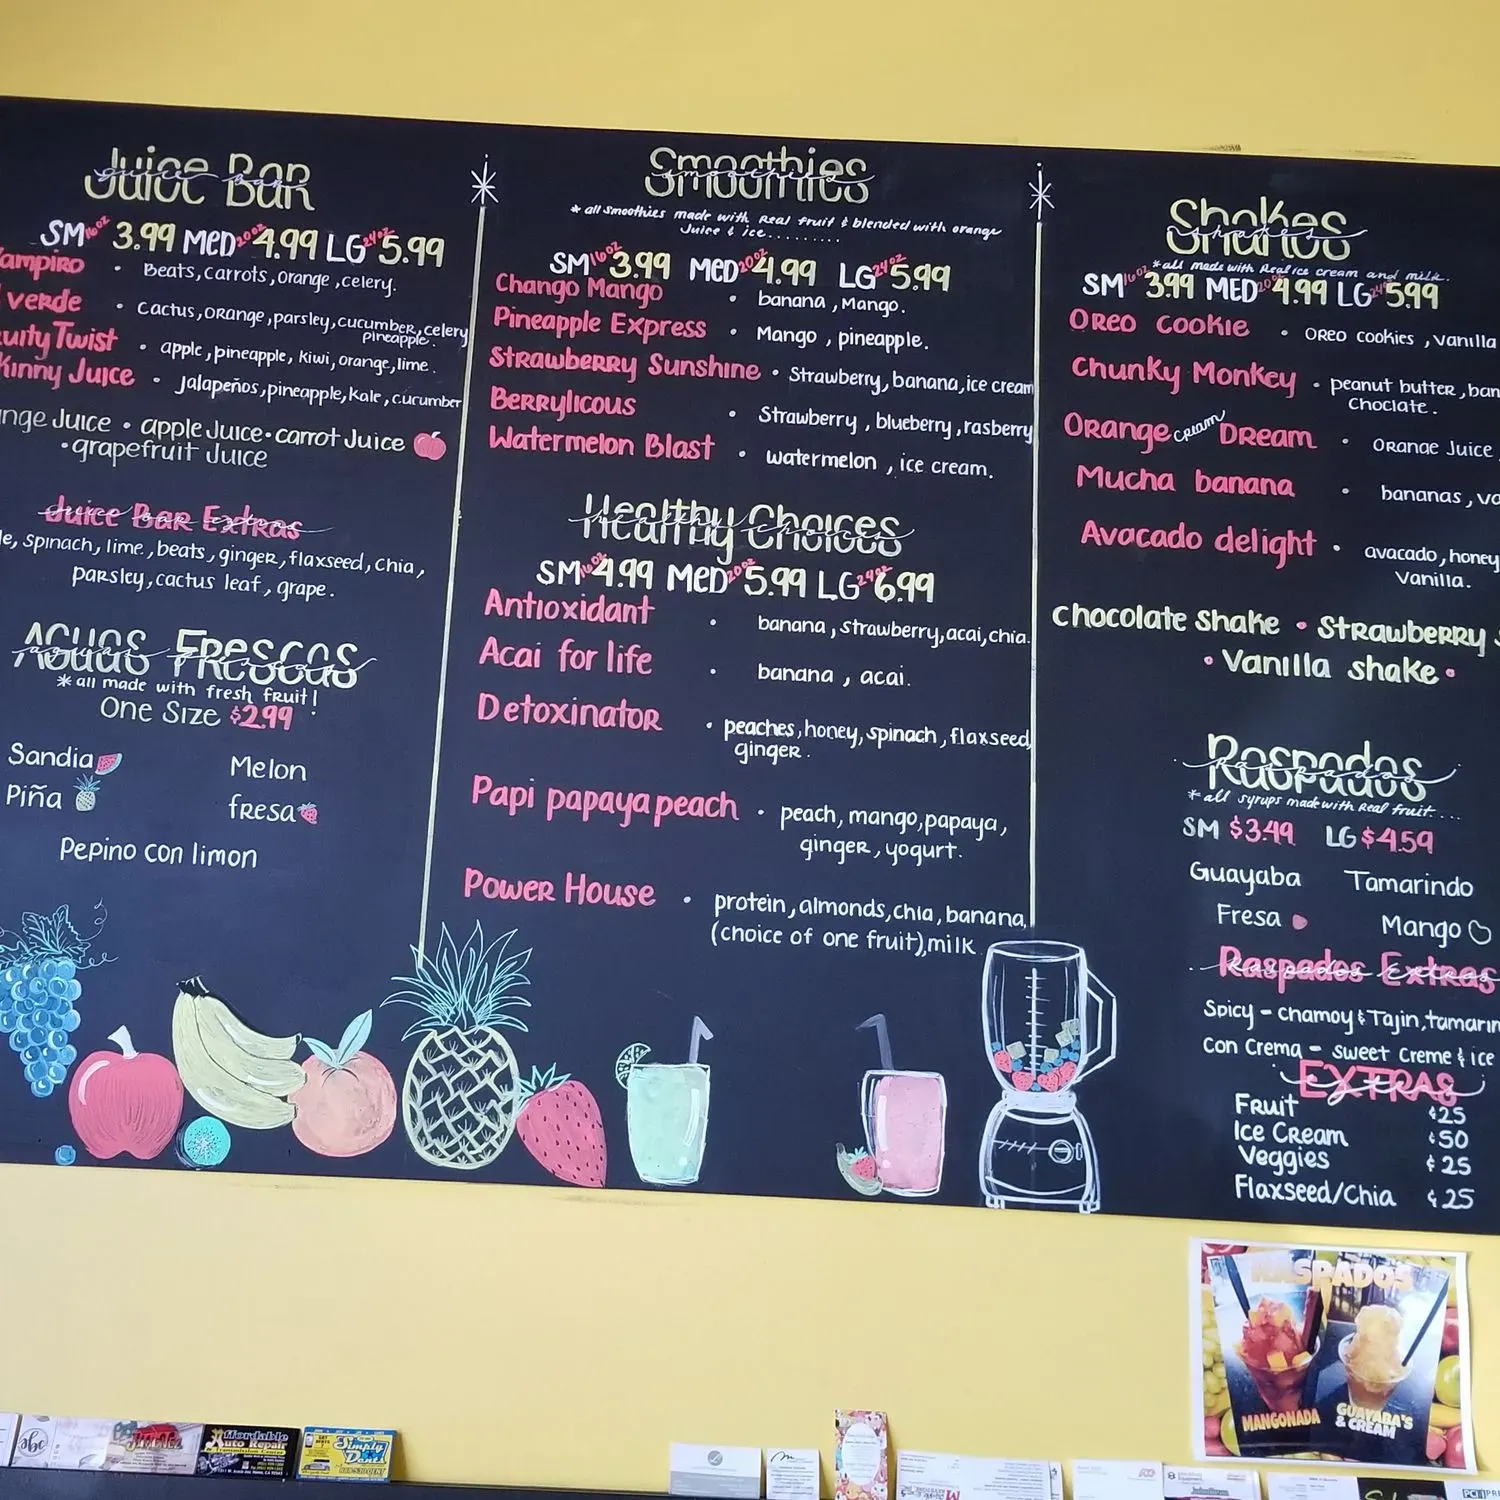 Juice Bar
juice bar
SM 16oz 3.99 MED 20oz 4.99 LG 24oz 5.99
ampiro • Beats, carrots, orange, celery.
verde • Cactus, orange, parsley, cucumber, celery
pineapple.
uity Twist • apple, pineapple, kiwi, orange, lime.
kinny Juice • jalapeños, pineapple, kale, cucumber
nge Juice • apple Juice • carrot Juice
• grapefruit Juice
Juice Bar Extras
juice bar extras
le, spinach, lime, beats, ginger, flaxseed, chia,
parsley, cactus leaf, grape.
Aguas Frescas
aguas frescas
* all made with fresh fruit!
One Size $2.99
Sandia Melon
Piña fresa
Pepino con limon
Smoothies
smoothies
* all smoothies made with real fruit & blended with orange
juice & ice.........
SM 16oz 3.99 MED 20oz 4.99 LG 24oz 5.99
Chango Mango • banana, Mango.
Pineapple Express • Mango, pineapple.
Strawberry Sunshine • Strawberry, banana, ice cream
Berrylicous • Strawberry, blueberry, rasberry
Watermelon Blast • watermelon, ice cream.
Healthy Choices
healthy choices
SM 16oz 4.99 MED 20oz 5.99 LG 24oz 6.99
Antioxidant • banana, strawberry, acai, chia.
Acai for life • banana, acai.
Detoxinator • peaches, honey, spinach, flaxseed,
ginger.
Papi papaya peach • peach, mango, papaya,
ginger, yogurt.
Power House • protein, almonds, chia, banana,
(choice of one fruit), milk.
Shakes
shakes
* all made with Real ice cream and milk.
SM 16oz 3.99 MED 20oz 4.99 LG 24oz 5.99
Oreo cookie • oreo cookies, vanilla
Chunky Monkey • peanut butter, ban
Choclate.
Orange cream Dream • Orange Juice
Mucha banana • bananas, va
Avacado delight • avacado, honey
Vanilla.
Chocolate shake • Strawberry s
• Vanilla shake •
Raspados
raspados
* all syrups made with real fruit....
SM $3.49 LG $4.59
Guayaba Tamarindo
Fresa Mango
Raspados Extras
raspados extras
Spicy - chamoy & Tajin, tamarin
Con Crema - sweet Creme & ice
EXTRAS
extras
Fruit ¢25
Ice Cream ¢50
Veggies ¢25
Flaxseed/Chia ¢25
RASPADOS
MANGONADA
GUAYABA'S
& CREAM
abc
Affordable
Auto Repair
Transmission Center
Simply
Dent
ADP